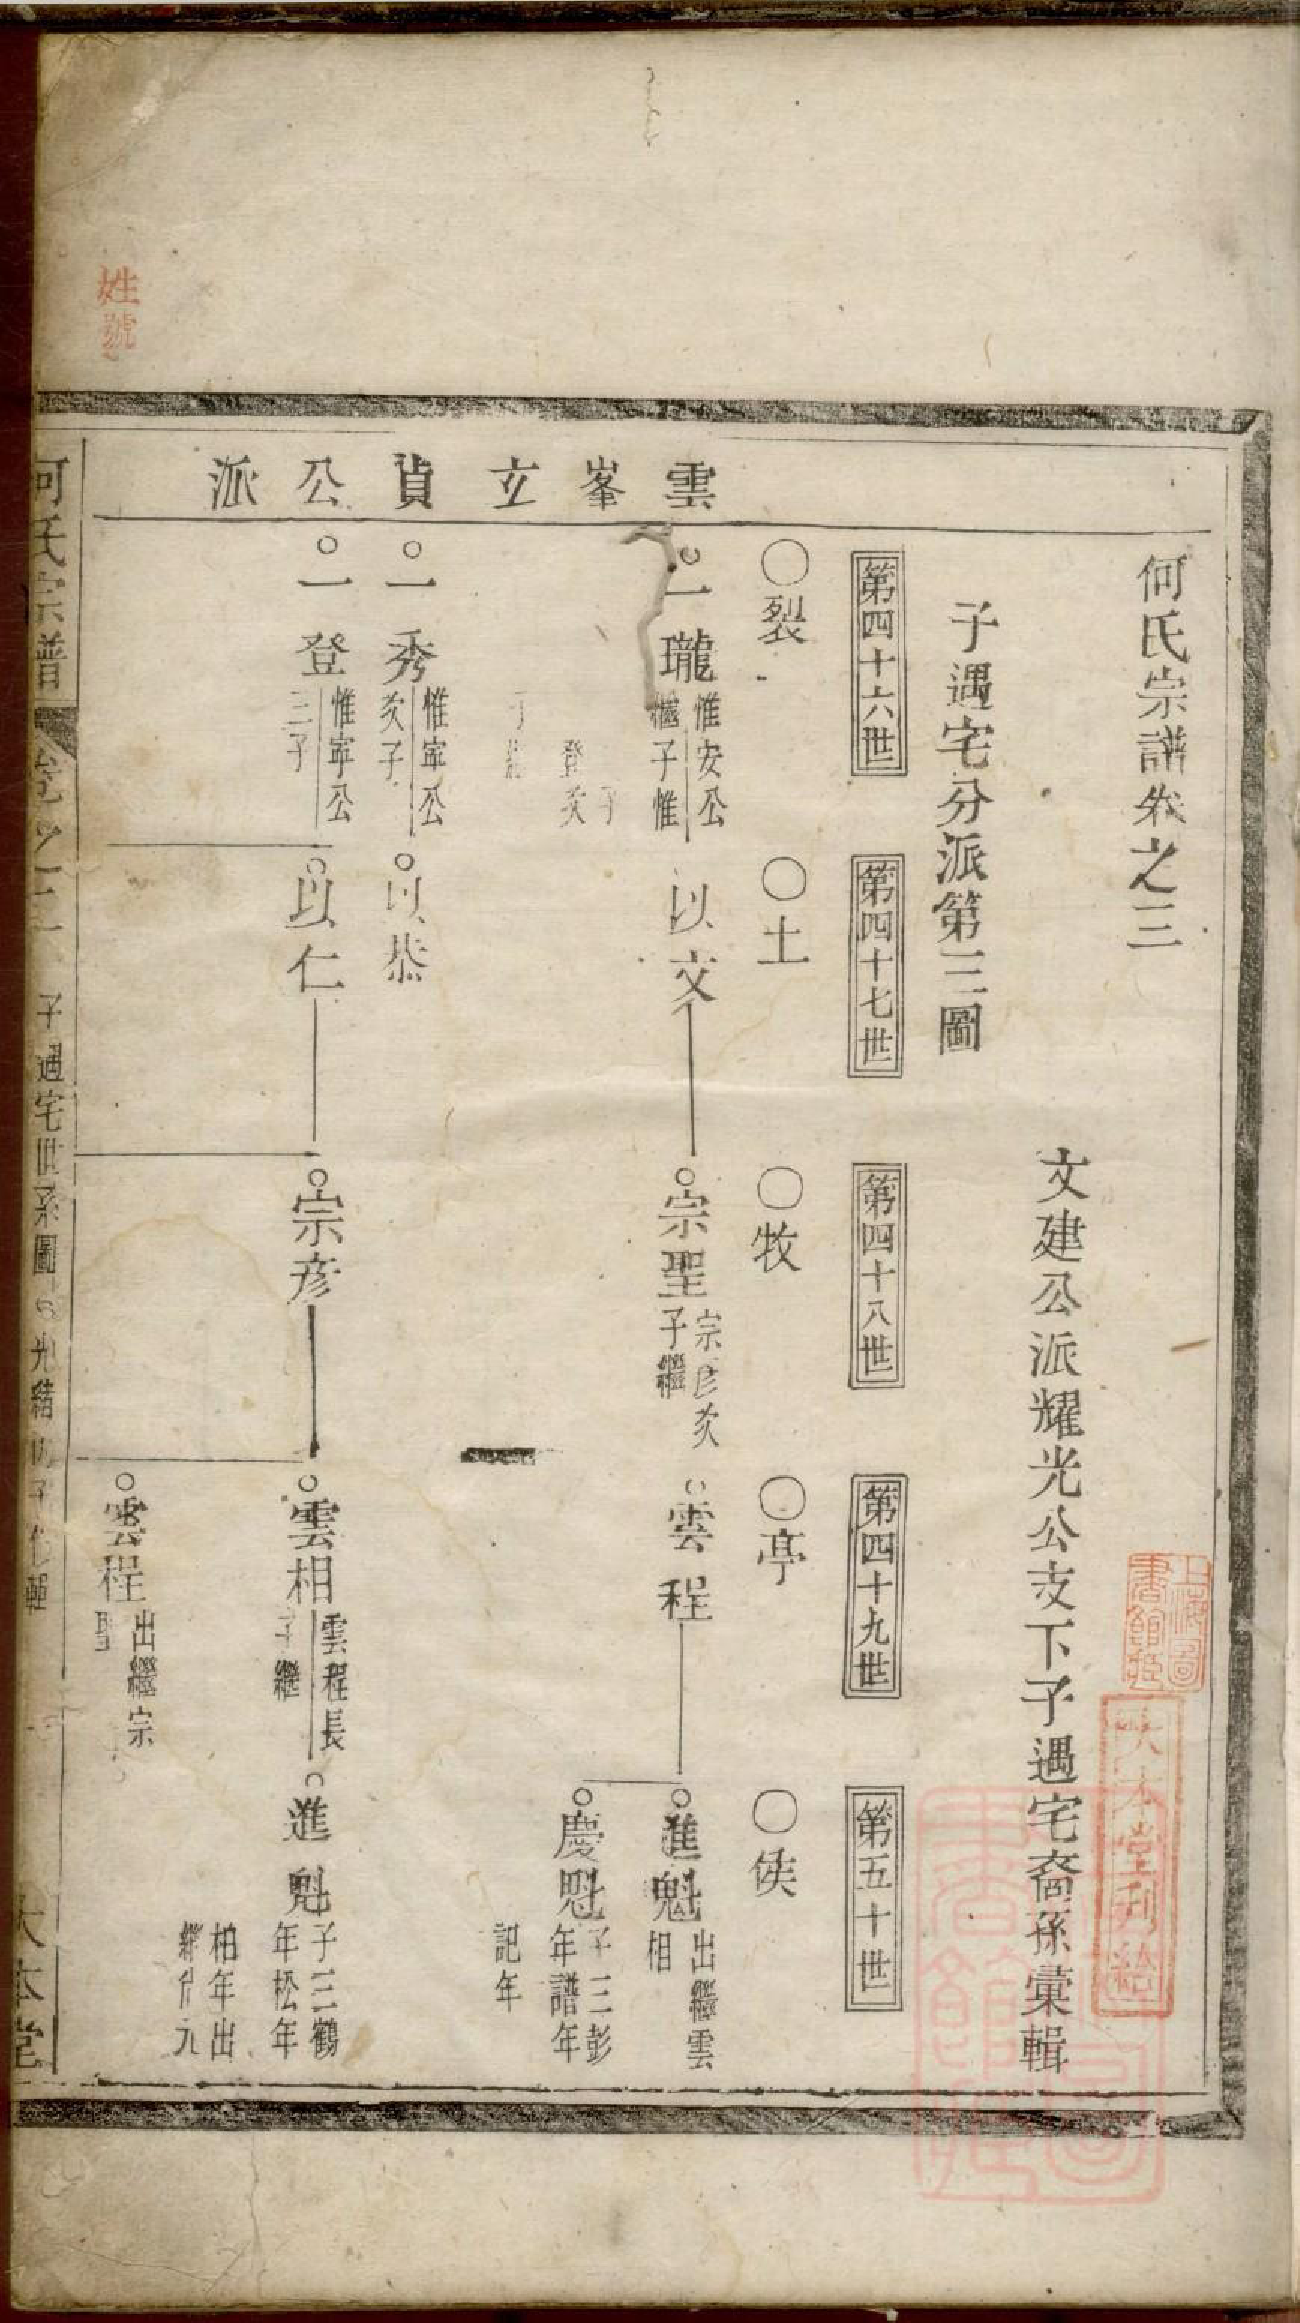 何氏宗譜卷之三
文建公派耀光公支下子遇宅裔孫彙輯
子遇宅分派第三圖
第四十六世
第四十七世
第四十八世
第四十九世
第五十世
〇裂
〇土
〇牧
〇亭
〇侯
雲峯立貞公派
一瓏
惟安公
繼子惟
登次子
以文
宗聖
宗彦次
子繼
雲程
進魁
出繼雲
相
慶魁
子三彭
年譜年
記年
一秀
惟寧公
次子
以恭
一登
惟寧公
三子
以仁
宗彦
雲相
雲程長
子繼
進魁
子三鶴
年松年
柏年出
雲程
出繼宗
聖
何氏宗譜
卷之三
子遇宅世系圖
大本堂
姓號
上海圖
書館藏
大本堂刊